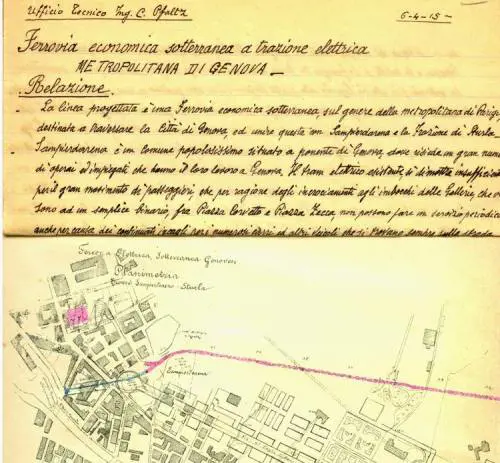 Ufficio Tecnico Ing. C. Pfaltz
6-4-15-
Ferrovia economica sotterranea a trazione elettrica
METROPOLITANA DI GENOVA_
Relazione_
- La linea progettata è una Ferrovia economica sotterranea, sul genere della metropolitana di Parigi
destinata a traversare la Città di Genova, ed unire questa con Sampierdarena e la Frazione di Sturla.
- Sampierdarena è un comune popolatissimo situato a ponente di Genova, dove risiede un gran num
di operai ed impiegati che hanno il loro lavoro a Genova. Il tram elettrico esistente si dimostra insufficiente
per il gran movimento di passeggieri, che per ragione degli incrociamenti agli imbocchi delle Gallerie, che
sono ad un semplice binario, fra Piazza Corvetto e Piazza Zecca non possono fare un servizio periodico
anche per causa dei continui incagli
numerosi carri ed altri veicoli che si trovano sempre sulla strada
Elettrica, Sotterranea Genovese
Planimetria
Sampierdarena - Sturla
Sampierdarena